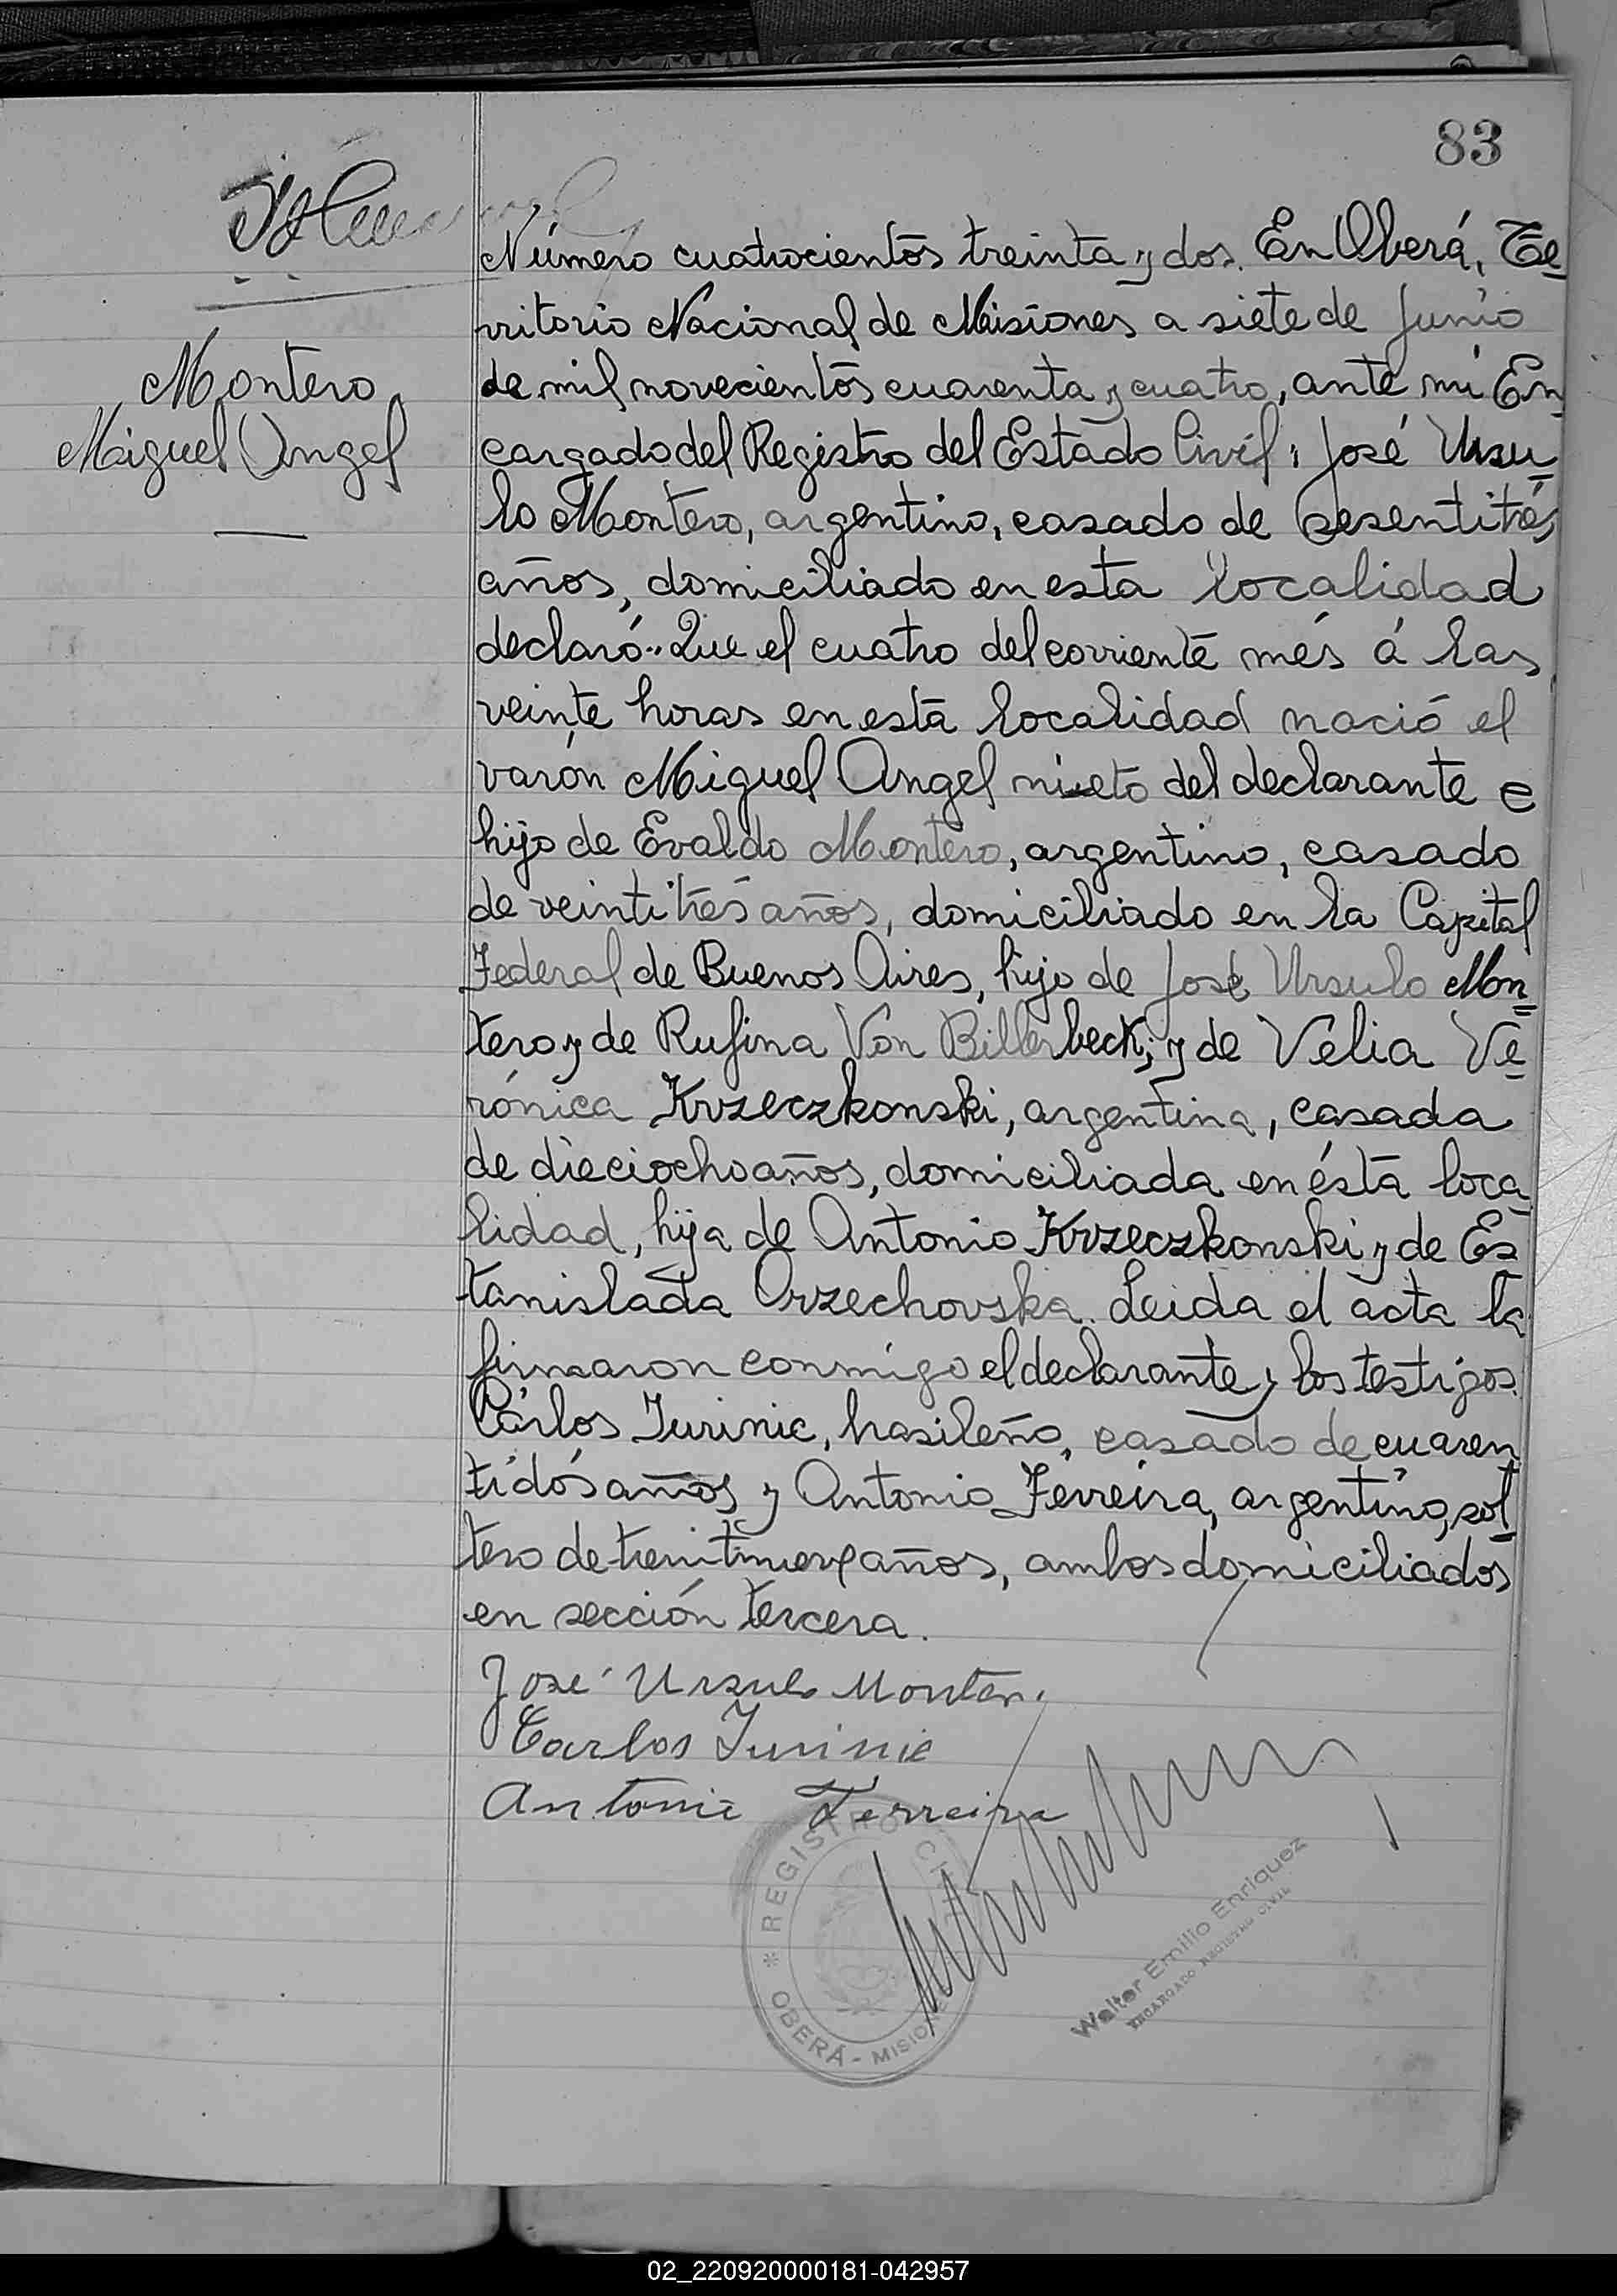 83
Número cuatrocientos treinta y dos. En Oberá, Te-
rritorio Nacional de Misiones a siete de Junio
de mil novecientos cuarenta y cuatro, ante mi En-
Montero
Miguel Angel
cargado del Registro del Estado Civil: José Ursu-
lo Montero, argentino, casado de sesentitrés
años, domiciliado en esta localidad
declaró: Que el cuatro del corriente més á las
veinte horas en esta localidad nació el
varón Miguel Angel nieto del declarante e
hijo de Evaldo Montero, argentino, casado
de veintitrés años, domiciliado en la Capital
Federal de Buenos Aires, hijo de José Ursulo Mon-
tero y de Rufina Von Billerbeck; y de Velia Ve-
rónica Krzeczkonski, argentina, casada
de dieciocho años, domiciliada en ésta loca-
lidad, hija de Antonio Krzeczkonski y de Es-
tanislada Orzechovska. Leida el acta la
firmaron conmigo el declarante y los testigos
Cárlos Jurinic, brasileño, casado de cuaren-
tidós años y Antonio Ferreira, argentino, sol-
tero de treintinueve años, ambos domiciliados
en sección tercera.
José Ursulo Montero
Carlos Jurinic
Antonio Ferreira
REGISTRO CIVIL
* OBERÁ - MISIONES
Walter Emilio Enriquez
ENCARGADO REGISTRO CIVIL
02_220920000181-042957